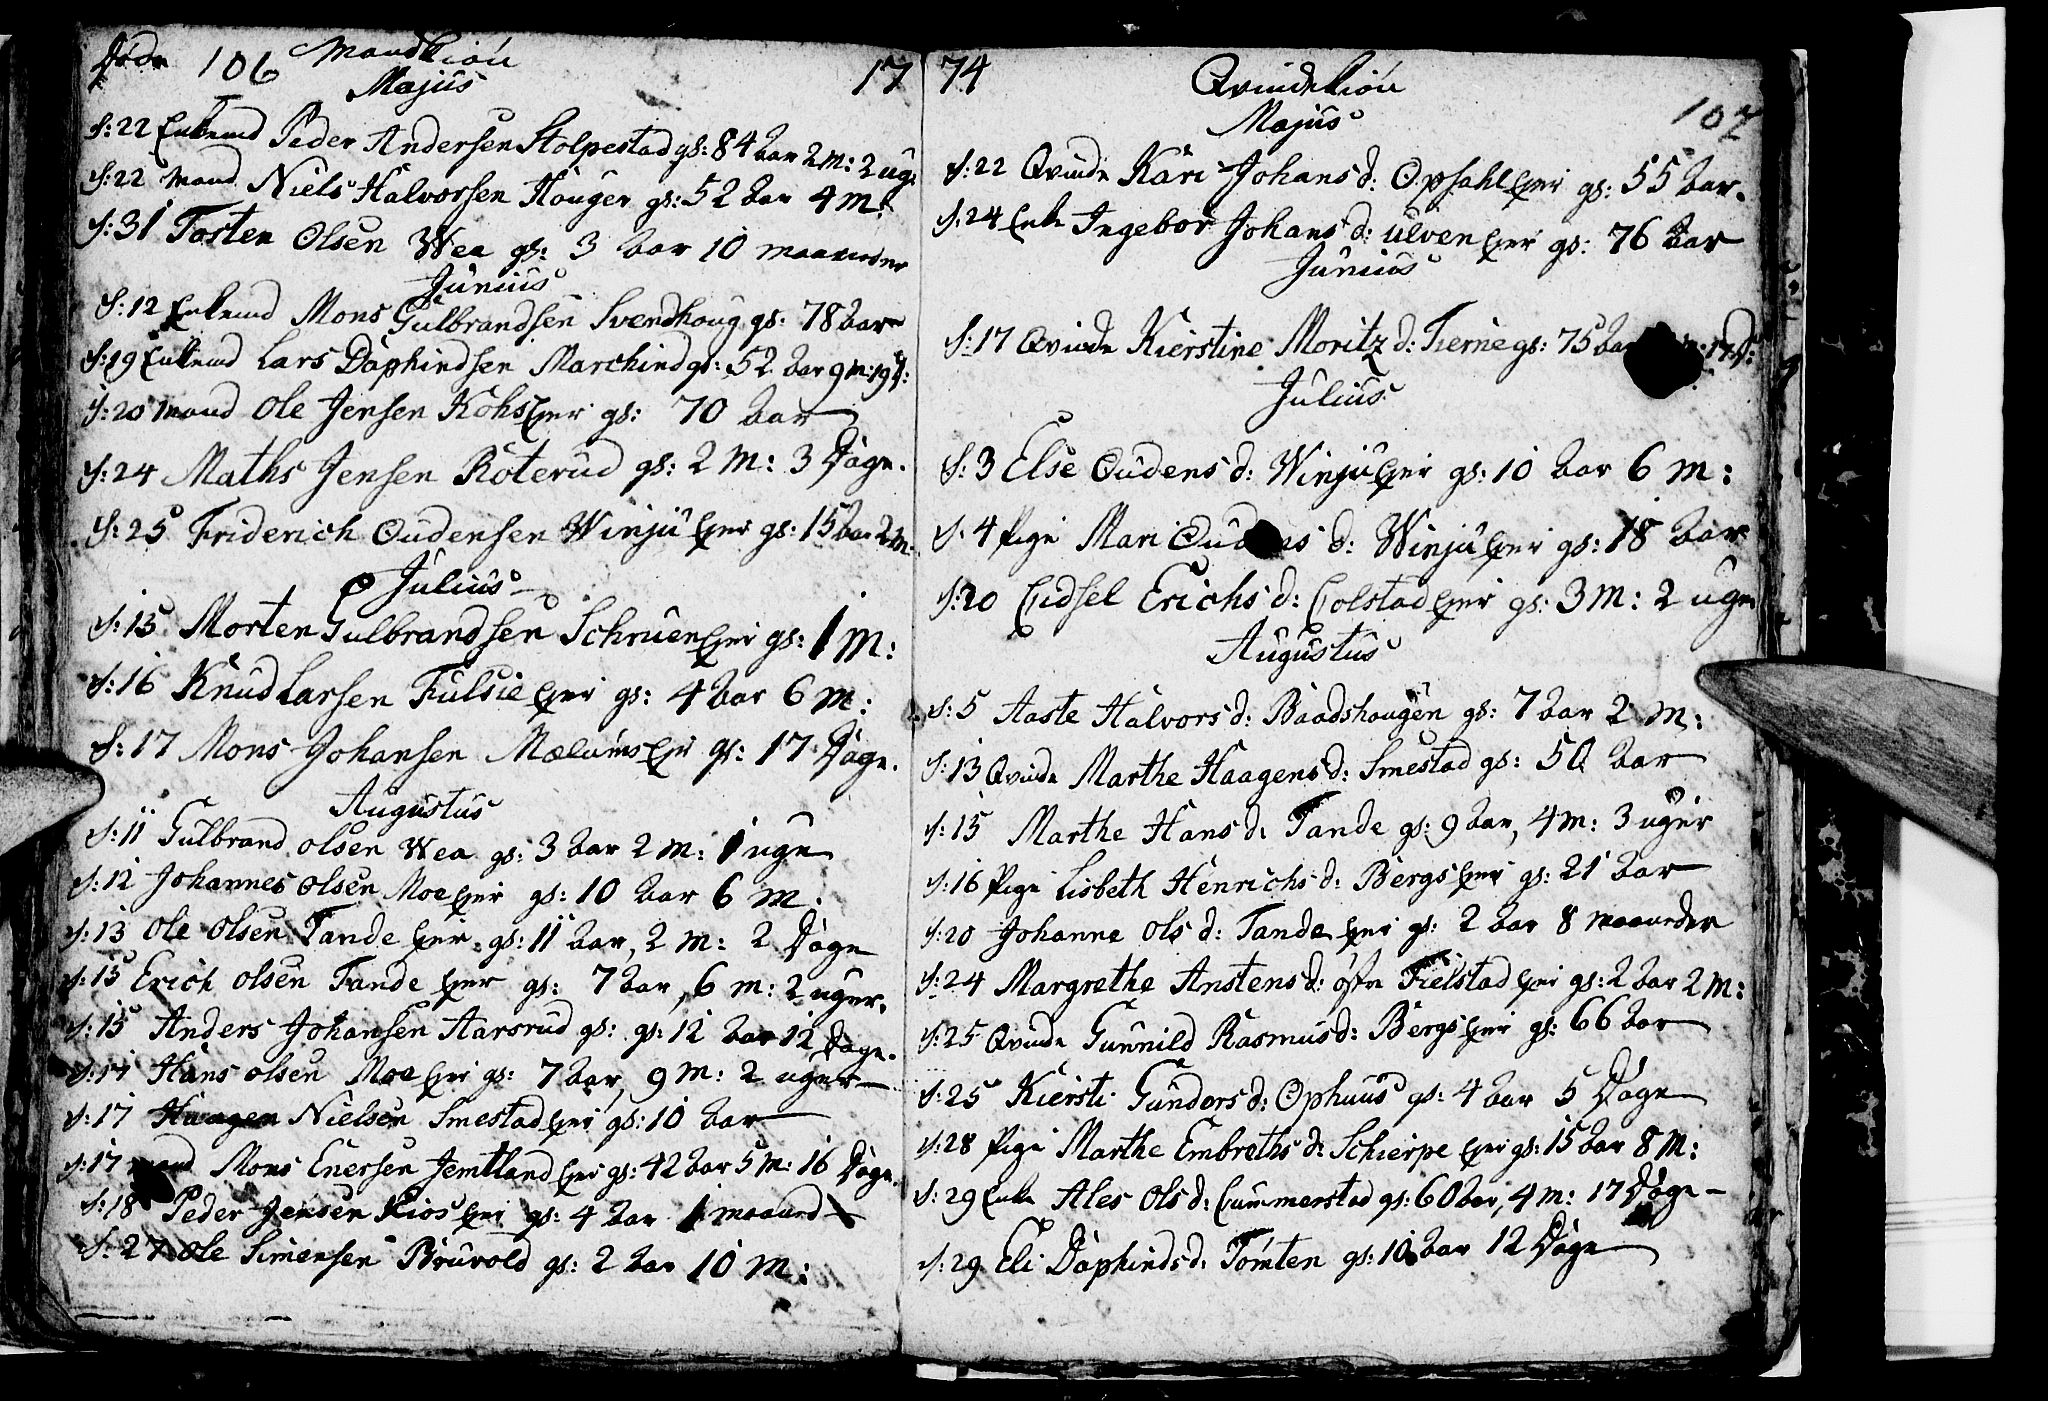 Døde 106 Mandkiön 17
Majus
S: 22 Enkemd Peder Andersen Stolpestad gs: 84 aar 2 m: 2 ug:
S: 22 Mand Niels Halvorsen Houger gs: 52 aar 4 m:
S: 31 Tosten Olsen Wea gs: 3 aar 10 maaneder
Junius
S: 12 Enkemd Mons Gulbrandsen Svendhoug gs: 78 aar
S: 19 Enkemd Lars Daphindsen Marchind gs: 52 aar 9 m: 19 D:
S: 20 Mand Ole Jensen Kohs Eier gs: 70 aar
S: 24 Maths Jensen Roterud gs: 2 m: 3 Dage.
S: 25 Friderich Oudensen Winju Eier gs: 15 aar 2 m.
Julius
S: 15 Morten Gulbrandsen Schruen Eier gs: 1 m:
S: 16 Knud Larsen Fulsie Eier gs: 4 aar 6 m:
S: 17 Mons Johansen Mælums Eier gs: 17 Dage.
Augustus
S: 11 Gulbrand Olsen Wea gs: 3 aar 2 m: 1 uge
S: 12 Johannes Olsen Moe Eier gs: 10 aar 6 m.
S: 13 Ole Olsen Tande Eier gs: 11 aar, 2 m: 2 Dage
S: 15 Erich Olsen Tande Eier gs: 7 aar, 6 m: 2 uger.
S: 15 Anders Johansen Aarsrud gs: gs: 12 aar 12 Dage.
S: 17 Hans Olsen Moe Eier gs: 7 aar, 9 m: 2 uger
S: 17 Haagen Nielsen Smestad Eier gs: 10 aar
S: 17 mand Mons Enersen Jemtland Eier gs: 42 aar 5 m: 16 Dage.
S: 18 Peder Jensen Kios Eier gs: 4 aar 1 maaned
S: 27 Ole Simensen Bruvold gs: 2 aar 10 m:
74 Qvindekiön
Majus 107
S: 22 Qvinde Kari Johans d: Opsahl Eier gs: 55 aar.
S: 24 Enke Ingebor Johans d: Ulven Eier gs: 76 aar
Junius
S: 17 Qvinde Kierstine Moritz d: Tierne gs: 75 aar 17 D:
Julius
S: 3 Else Oudens d: Winju Eier gs: 10 aar 6 m:
S: 4 Pige Mari Oudens d: Winju Eier gs: 18 aar
S: 20 Eidsel Erichs d: Colstad Eier gs: 3 m: 2 uge
Augustus
S: 5 Aaste Halvors d: Baadshougen gs: 7 aar 2 m:
S: 13 Qvinde Marthe Haagens d: Smestad gs: 50 aar
S: 15 Marthe Hans d: Tande gs: 9 aar, 4 m: 3 uger
S: 16 Pige Lisbeth Henrichs d: Bergs Eier gs: 21 aar
S: 20 Johanne Ols d: Tande Eier gs: 2 aar 8 maaneder
S: 24 Margrethe Anstens d: østre Fielstad Eier gs: 2 aar 2 m:
S: 25 Qvinde Gunnild Rasmus d: Bergs Eier gs: 66 aar
S: 25 Kiersti Gunders d: Ophuus gs: 4 aar 5 Dage
S: 28 Pige Marthe Embreths d: Schierpe Eier gs: 15 aar 8 m:
S: 29 Enke Ales Ols d: Cummerstad gs: 60 aar, 4 m: 17 Dage
S: 29 Eli Daphinds d: Tomten gs: 10 aar 12 Dage